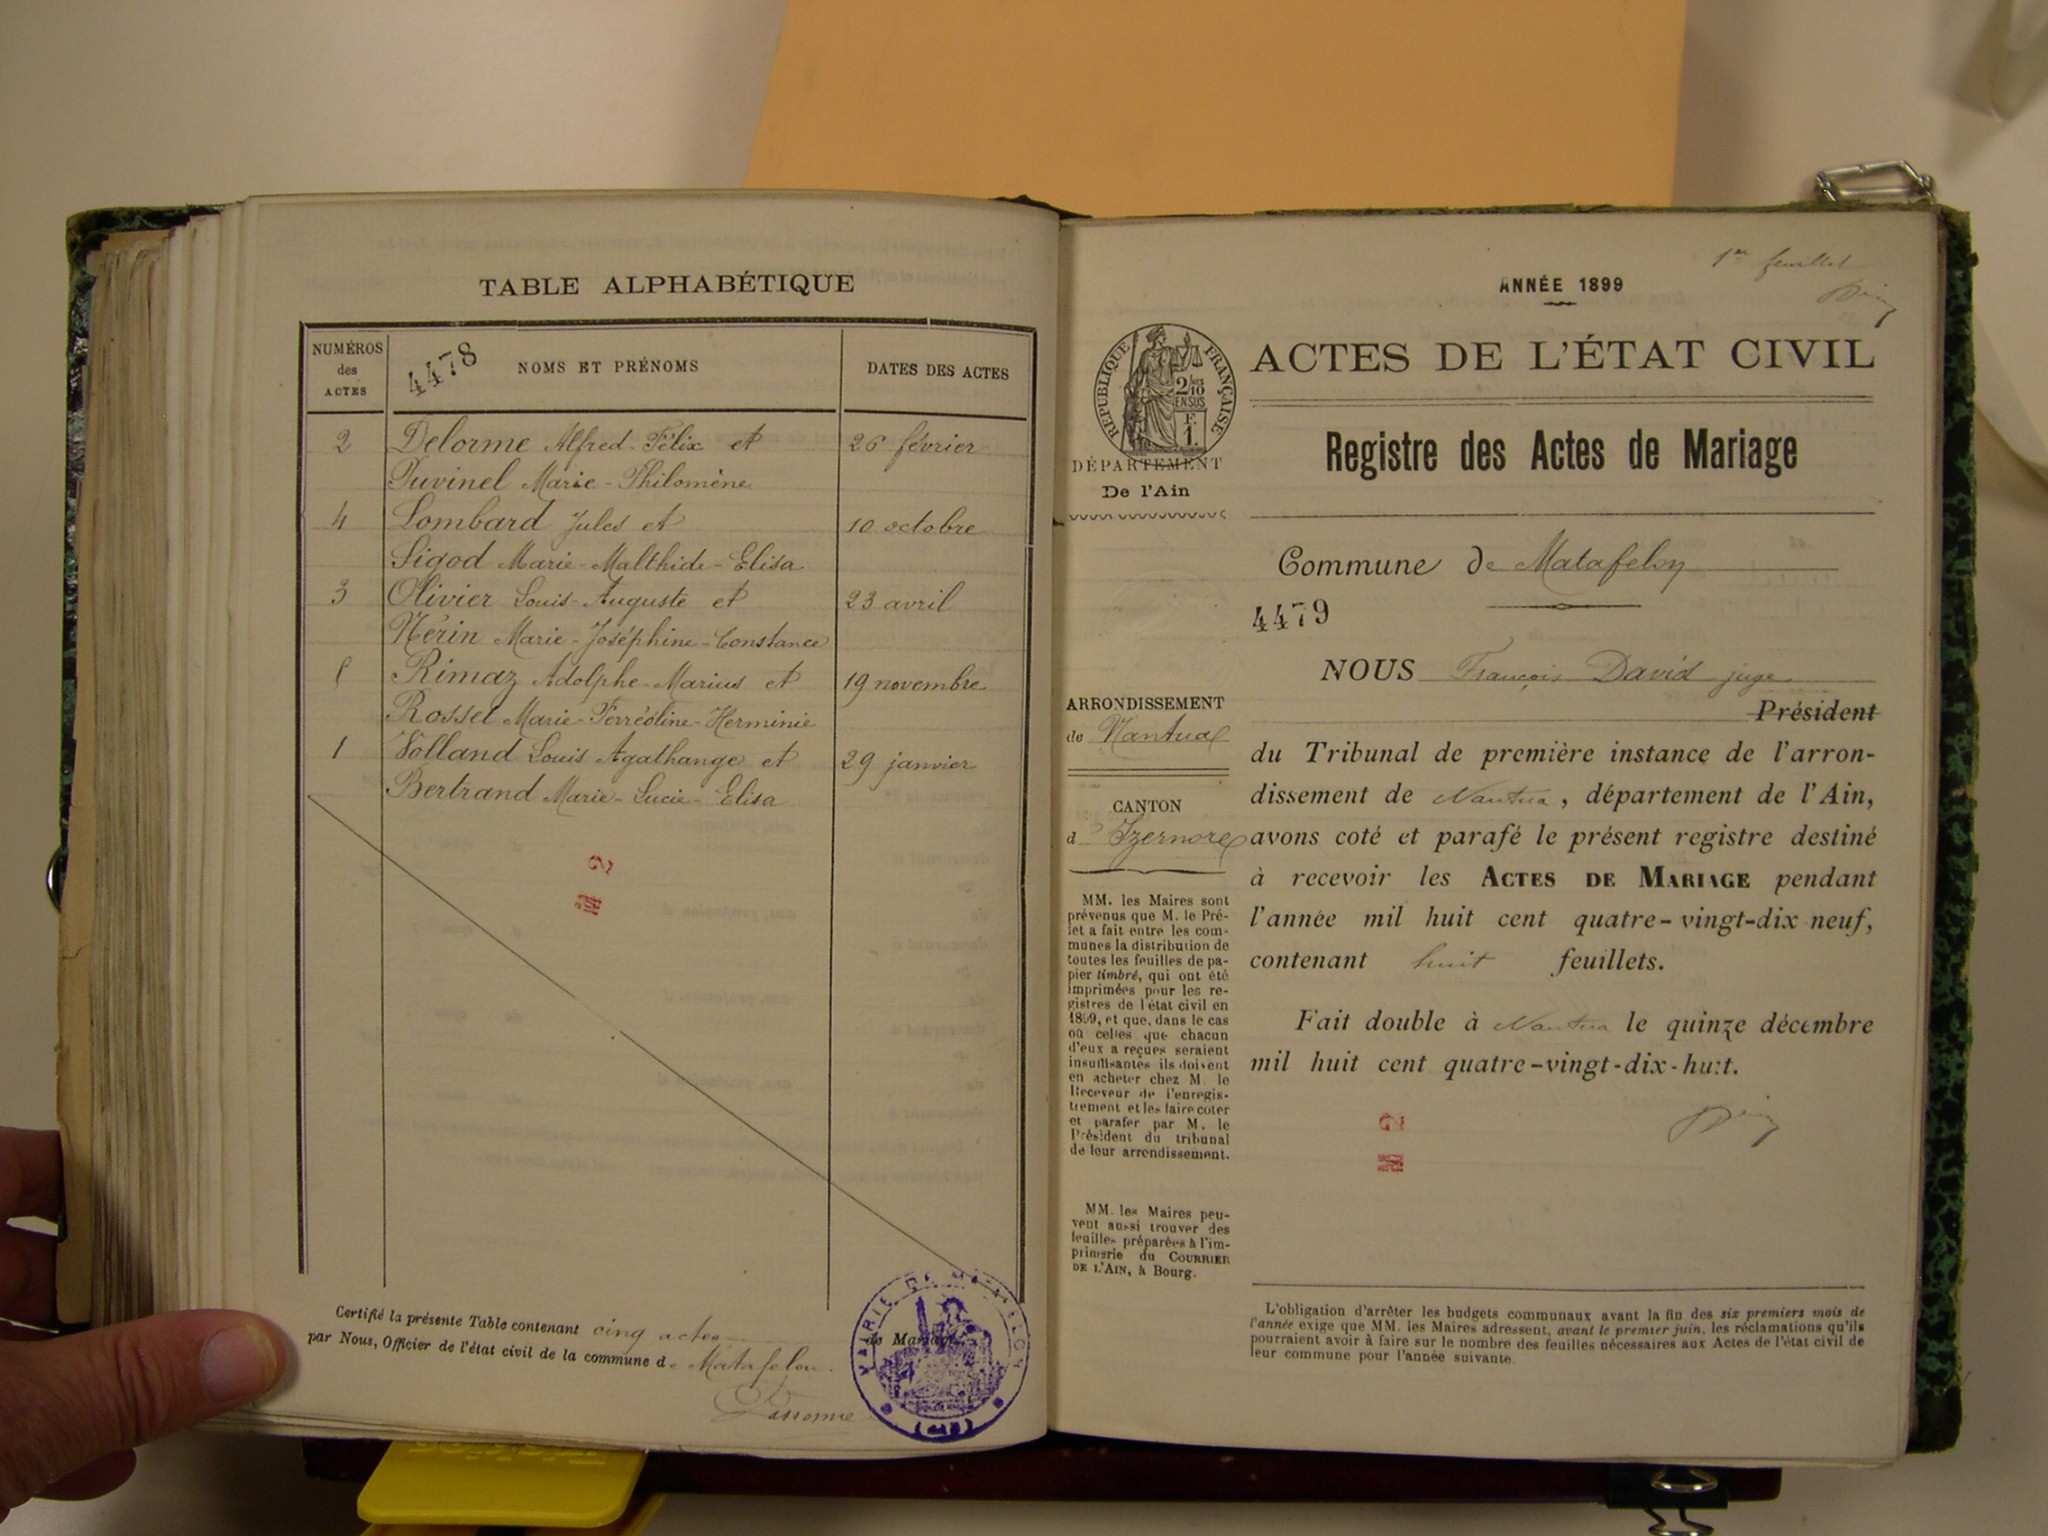 TABLE ALPHABÉTIQUE
NUMÉROS des ACTES
4478
NOMS ET PRÉNOMS
DATES DES ACTES
2 Delorme Alfred-Félix et 26 février
Tuvinel Marie-Philomène
4 Lombard Jules et 10 octobre
Sigod Marie-Malthide-Elisa
3 Olivier Louis-Auguste et 23 avril
Nérin Marie-Joséphine-Constance
Rimaz Adolphe-Marius et 19 novembre
Rosset Marie-Ferréoline-Herminie
1 Volland Louis Agathange et 29 janvier
Bertrand Marie-Lucie-Elisa
Certifié la présente Table contenant cinq actes de Mariage
par Nous, Officier de l'état civil de la commune de Matafelon.
MAIRIE DE MATAFELON
(AIN)
1er feuillet
ANNÉE 1899
RÉPUBLIQUE FRANÇAISE
2/10 EN SUS
F. 1.
ACTES DE L'ÉTAT CIVIL
Registre des Actes de Mariage
DÉPARTEMENT
De l'Ain
Commune de Matafelon
4479
NOUS François David juge
Président
ARRONDISSEMENT
de Nantua
CANTON
d'Izernore
du Tribunal de première instance de l'arron-
dissement de Nantua, département de l'Ain,
avons coté et parafé le présent registre destiné
à recevoir les ACTES DE MARIAGE pendant
l'année mil huit cent quatre-vingt-dix-neuf,
contenant huit feuillets.
Fait double à Nantua le quinze décembre
mil huit cent quatre-vingt-dix-huit.
MM. les Maires sont
prévenus que M. le Pré-
fet a fait entre les com-
munes la distribution de
toutes les feuilles de pa-
pier timbré, qui ont été
imprimées pour les re-
gistres de l'état civil en
1899, et que, dans le cas
où celles que chacun
d'eux a reçues seraient
insuffisantes ils doivent
en acheter chez M. le
Receveur de l'enregis-
trement et les faire coter
et parafer par M. le
Président du tribunal
de leur arrondissement.
MM. les Maires peu-
vent aussi trouver des
feuilles préparées à l'im-
primerie du COURRIER
DE L'AIN, à Bourg.
L'obligation d'arrêter les budgets communaux avant la fin des six premiers mois de
l'année exige que MM. les Maires adressent, avant le premier juin, les réclamations qu'ils
pourraient avoir à faire sur le nombre des feuilles nécessaires aux Actes de l'état civil de
leur commune pour l'année suivante.